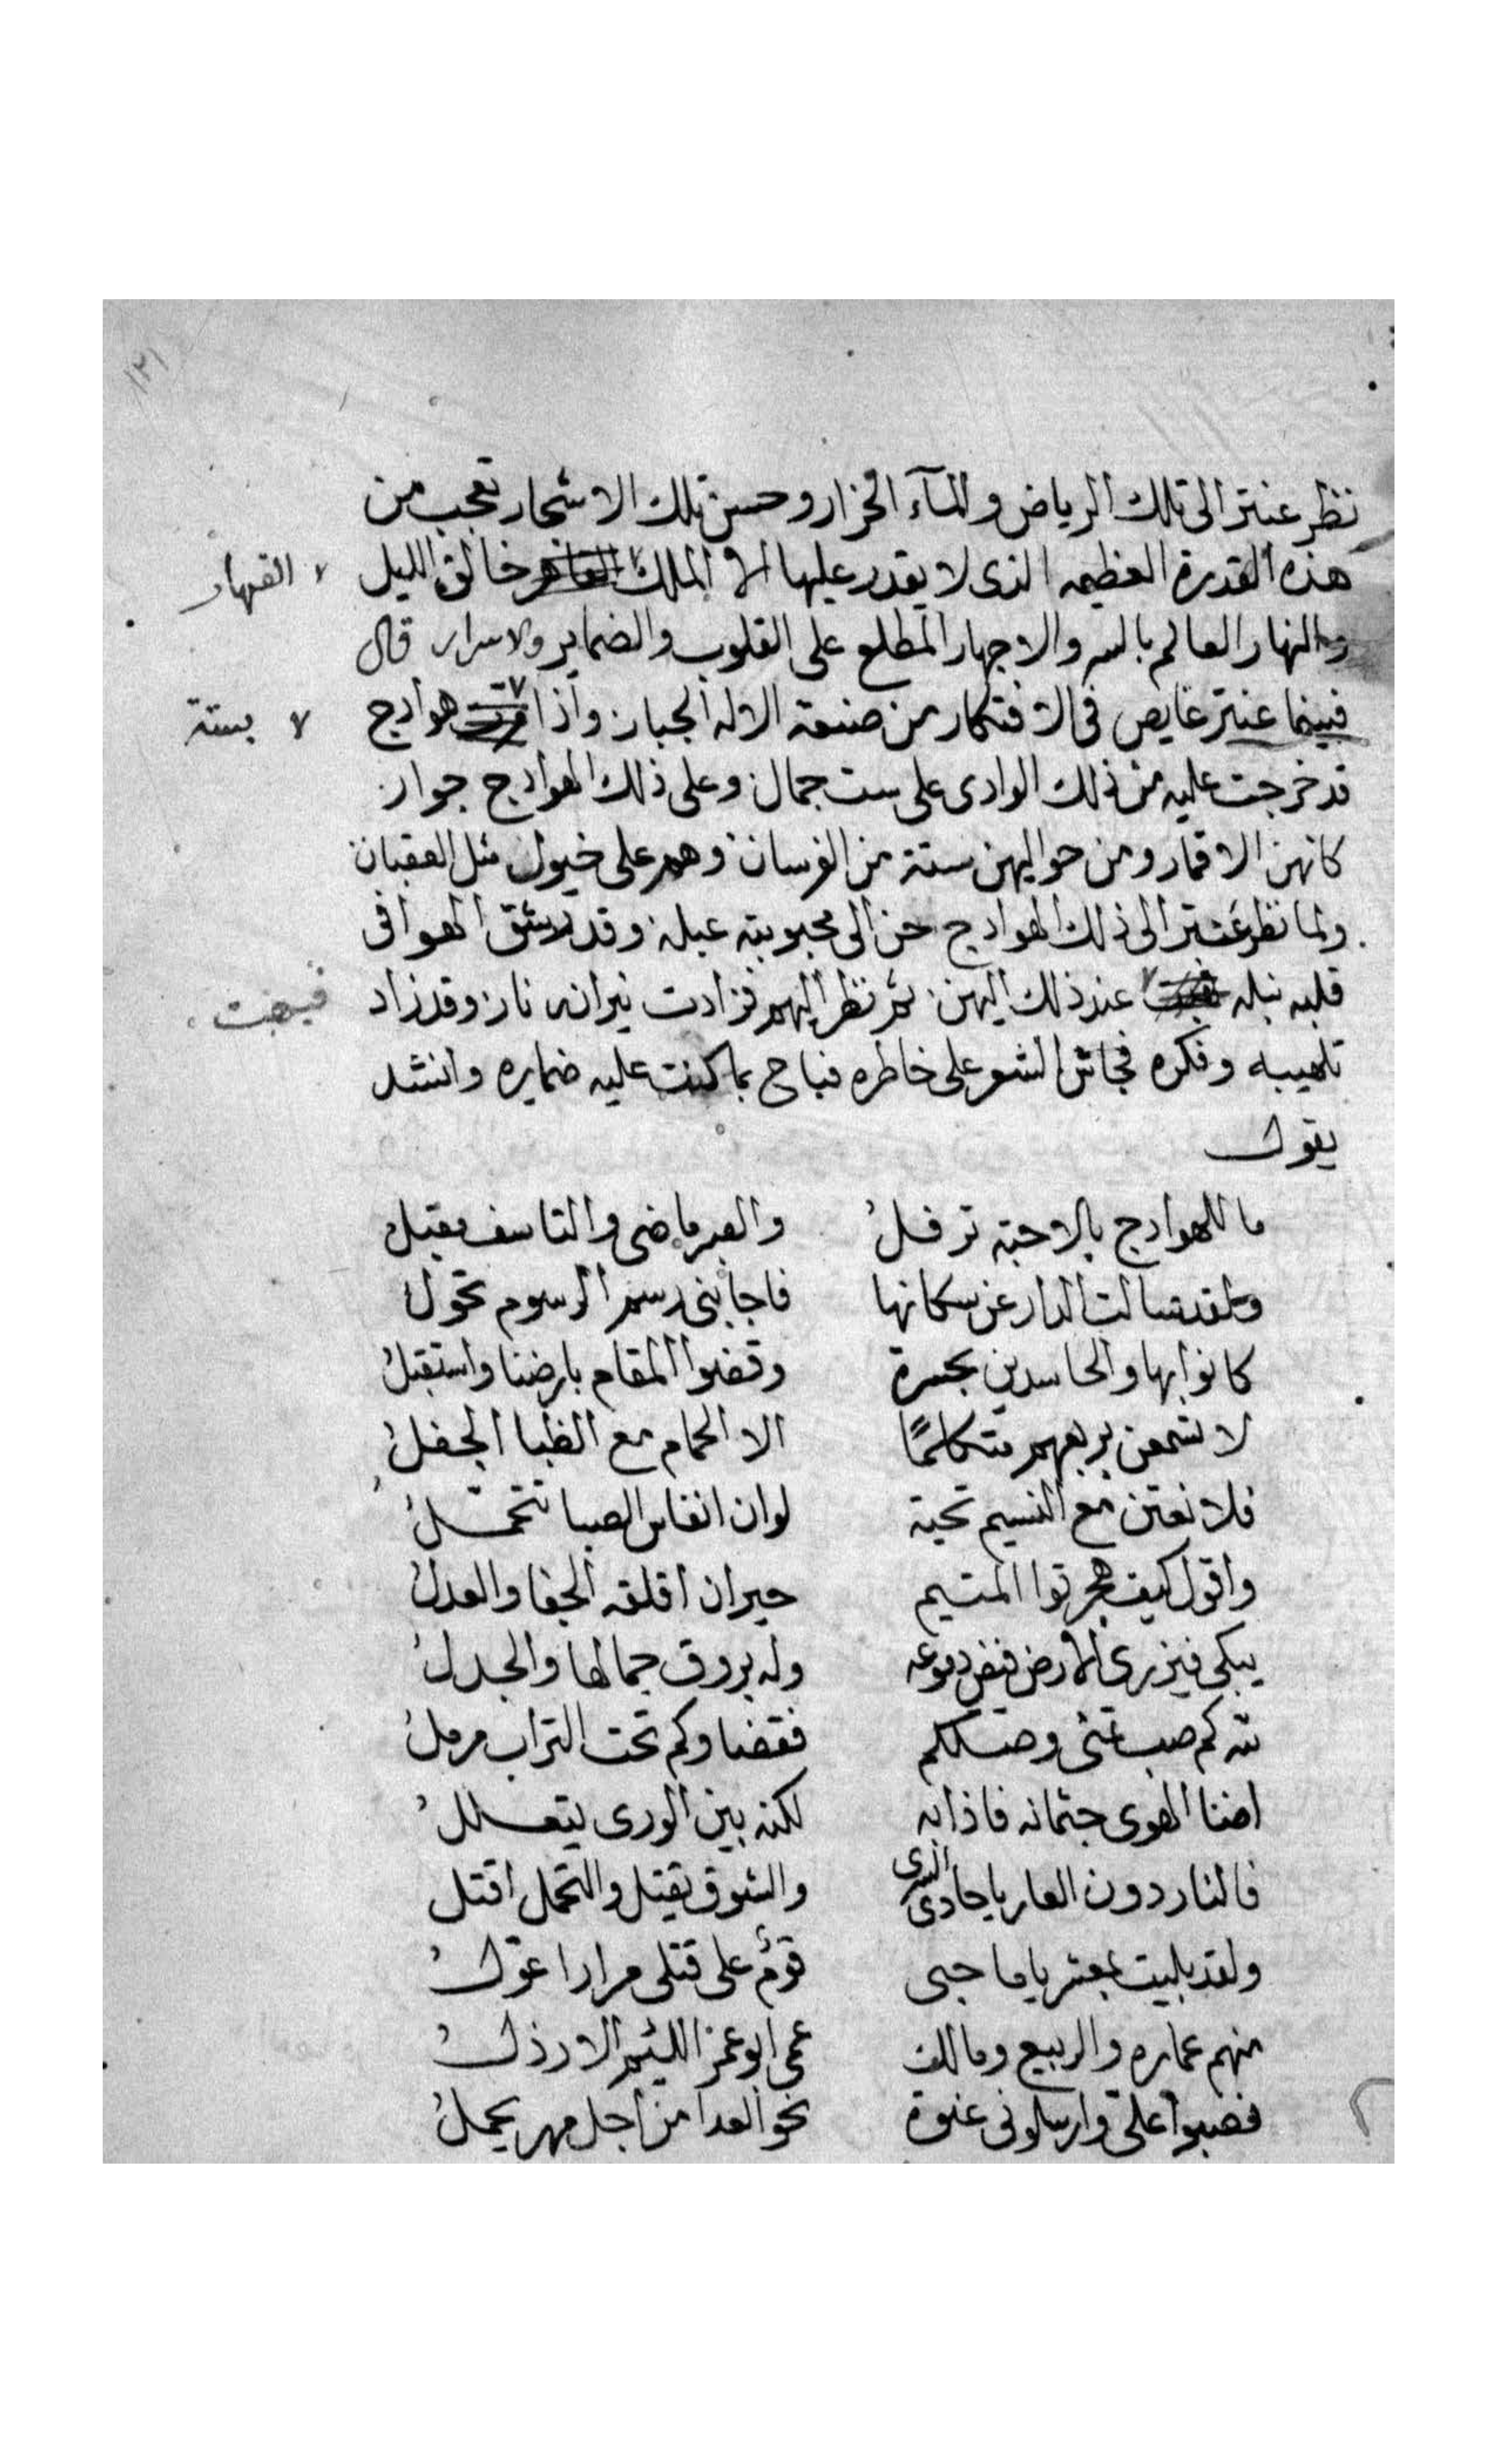 ١٢١
نظر عنتر الى تلك الرياض والمآء الخرار وحسن تلك الاشجار تعجب من
هذه القدرة العظيمه الذى لا يقدر عليها الا الملك القاهر خالق الليل
القهار
والنهار العالم بالسر والاجهار المطلع على القلوب والضماير والاسرار قال
فبينما عنتر غايص فى الافتكار من صنعة الاله الجبار واذا هوادج
بستة
قد خرجت عليه من ذلك الوادى على ست جمال وعلى ذلك الهوادج جوار
كانهن الاقمار ومن حواليهن ستة من الفرسان وهم على خيول مثل العقبان
ولما نظر عنتر الى ذلك الهوادج حن الى محبوبته عبله وقد رشق الهوا فى
قلبه نبله عند ذلك اليهن ثم نظر اليهم فزادت نيرانه نار وقد زاد
فبهت
تلهيبه وفكره فجاش الشعر على خاطره فباح بما كنت عليه ضمايره وانشد
يقول
ما للهوادج بالاحبة ترفلُ والعبر ماضى والتاسف مقبل
ولقد سالت الدار عن سكانها فاجابنى رسم الرسوم تحول
كانوا بها والحاسدين بحسرة وقضوا المقام بارضنا واستقبلُ
لا تسمعن بربعهم متكلمًا الا الحمام مع الظبا الجفلُ
فلابعثن مع النسيم تحية لو ان انفاس الصبا تتحمّلُ
واقول كيف هجرتوا المتيم حيران اقلقه الجفا والعدلُ
يبكى فيزرى الارض فيض دموعه وله يروق جمالها والجدلُ
لله كم صب تمنى وصلكم فقضا وكم تحت التراب مرملُ
اضنا الهوى جثمانه فاذابه لكنه بين الورى يتعللُ
فالنار دون العار يا حادى السرى والشوق يقتل والتحمل اقتل
ولقد بليت بمعشر يا صاحبى قومٌ على قتلى مرارا عوّلُ
منهم عماره والربيع ومالك عمى ابو عمر اللئيم الارذلُ
فصبوا علىّ وارسلونى عنوة نحو العدا من اجل مهر يحملُ